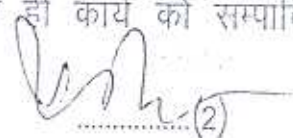 ही कार्य को सम्पादि
(2)